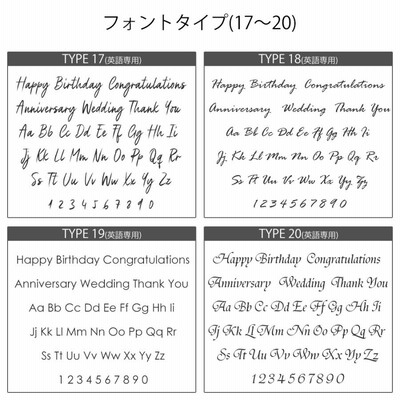 フォントタイプ(17〜20)
TYPE 17(英語専用)
Happy Birthday Congratulations
Anniversary Wedding Thank You
Aa Bb Cc Dd Ee Ff Gg Hh Ii
Jj Kk Ll Mm Nn Oo Pp Qq Rr
Ss Tt Uu Vv Ww Xx Yy Zz
1 2 3 4 5 6 7 8 9 0
TYPE 18(英語専用)
Happy Birthday Congratulations
Anniversary Wedding Thank You
Aa Bb Cc Dd Ee Ff Gg Hh Ii
Jj Kk Ll Mm Nn Oo Pp Qq Rr
Ss Tt Uu Vv Ww Xx Yy Zz
1 2 3 4 5 6 7 8 9 0
TYPE 19(英語専用)
Happy Birthday Congratulations
Anniversary Wedding Thank You
Aa Bb Cc Dd Ee Ff Gg Hh Ii
Jj Kk Ll Mm Nn Oo Pp Qq Rr
Ss Tt Uu Vv Ww Xx Yy Zz
1 2 3 4 5 6 7 8 9 0
TYPE 20(英語専用)
Happy Birthday Congratulations
Anniversary Wedding Thank You
Aa Bb Cc Dd Ee Ff Gg Hh Ii
Jj Kk Ll Mm Nn Oo Pp Qq Rr
Ss Tt Uu Vv Ww Xx Yy Zz
1 2 3 4 5 6 7 8 9 0